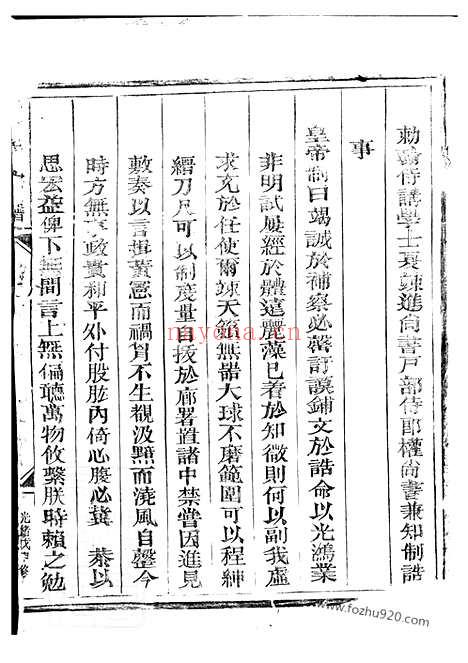 勅翰侍講學士夏竦進尚書戸部侍郎權尚書兼知制誥
事
皇帝制曰竭誠於補察必罄訏謨鋪文於誥命以光鴻業
非明試屢經於體遠麗藻已着於知微則何以副我虛
求充於任使爾竦天資無器大球不磨範圍可以程紳
縉刀尺可以制度量自拔於廊署置諸中禁嘗因進見
敷奏以言揖黃憲而禍胷不生覩汲黯而澆風自罄今
時方無政貴和平外付股肱內倚心膂必冀恭以
思益俾下無間言上無偏聽萬物攸繫朕時賴之勉
譜
光緒戊修
naydna.cn
www.fozhu920.com